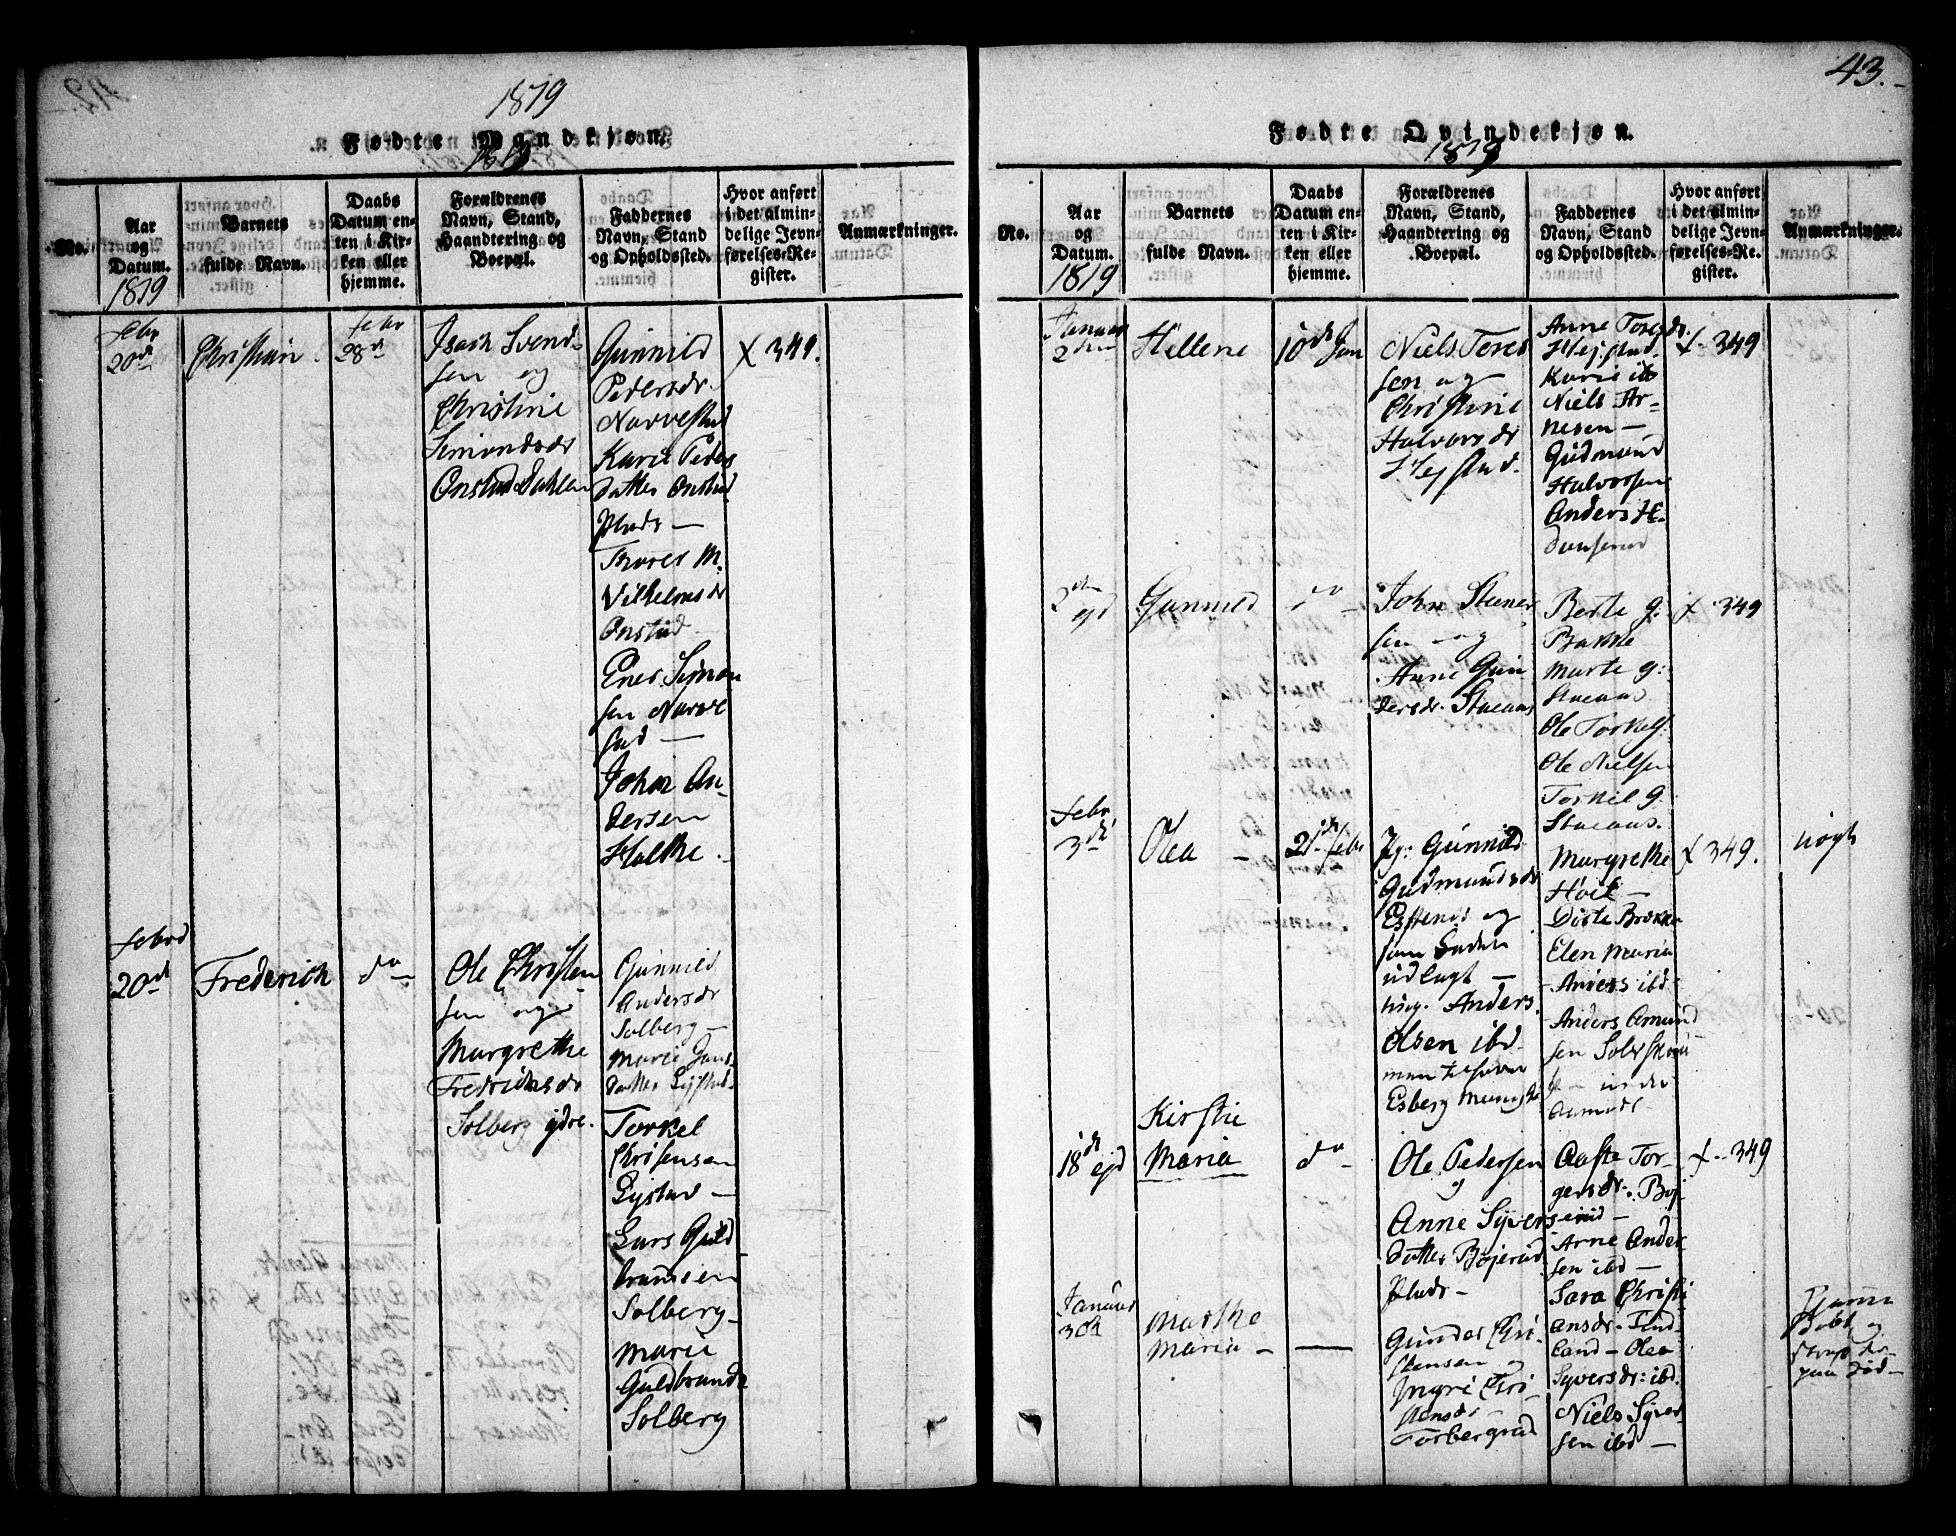 1819
Fødte Mandkjøn.
No.
Aar og Datum.
1819
Barnets fulde Navn.
Daabs Datum enten i Kirken eller hjemme.
Forældrenes Navn, Stand, Haandtering og Boepæl.
Faddernes Navn, Stand og Opholdssted.
Hvor anført i det almindelige Jevnførelses-Register.
Anmærkninger.
Febr
20d
Christian
Febr
28d
Isach Svend-
sen og
Christine
Simonsdr
Onstad Dahlen
Gunnild
Pedersdr.
Narvestad
Karie Peders
datter Onstad
plads —
Maren M.
Vilhelmsdr
Onstad
Ener Simon
sen Narve
stad —
Johan An-
dersen
Holthe.
X 349.
Febr
20d
Frederich
do
Ole Christen
sen og
Margrethe
Fredrichsdr
Solberg ydre.
Gunnild
Andersdr
Solberg —
Marie Jans
datter Lystad
Torkel
Christensen
Lystad —
Lars Guld
brandsen
Solberg —
Marie
Guldbrands
Solberg
43.
Fødte Qvindekjøn.
1819
No.
Aar og Datum.
1819
Barnets fulde Navn.
Daabs Datum enten i Kirken eller hjemme.
Forældrenes Navn, Stand, Haandtering og Boepæl.
Faddernes Navn, Stand og Opholdssted.
Hvor anført i det almindelige Jevnførelses-Register.
Anmærkninger.
Januar
2den
Hellene
10de Jan
Niels Teres
sen og
Christine
Halvorsdr
Anne
Karie ib
Niels Ar-
nesen —
Gudmund
Halvorsen
Anders
X 349
2den
ejd
Gunnild
do
John Stener
sen og
Anne Gun
dersdr. Staeaas
Berte G.
Bakke
Marte G:
Staeaas
Ole Torkels.
Ole Nielsen
Torkil G.
Staeaas.
X 349
Febr
3de
Olea —
21de Febr
Pg: Gunnild
Gudmundsdr
og
som Fader
udlagt —
Ung. Anders
Olsen ibd
Margrethe
Hoel —
Dorte Brække
Elen Maria
Anders ibd
Anders Amund
sen
X 349.
uægt
18de ejd
Kirstie
Maria
do
Ole Pedersen
og
Anne Syvers
datter Bøjerud
plads —
Aaste Tor-
gersdr. Bøj
erud —
Arne Ander
sen ibd —
Sara Christi
ansdr.
land — Olea
Syversdr: ibd.
Niels Syver
sen ibd —
X 349
Januar
30te
Marthe
Maria —
—
Gunder Chri-
stensen og
Ingri Chri
stensdr
Torbergrud
Hjemme
Døbt og
strax der
paa Død —